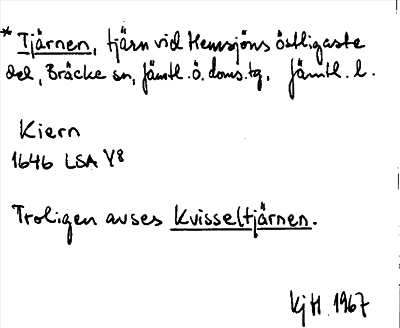 * Tjärnen, tjärn vid Hemsjöns östligaste
del, Bräcke sn, Jämtl. ö. doms.tg, Jämtl. l.
Kiern
1646 LSA Y8
Troligen avses Kvisseltjärnen.
KjH 1967